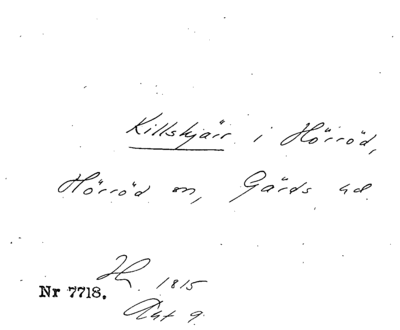 Killskjärr i Hörröd,
Hörröd sn, Gärds hd.
H. 1815
Nr 7718.
Akt 9.